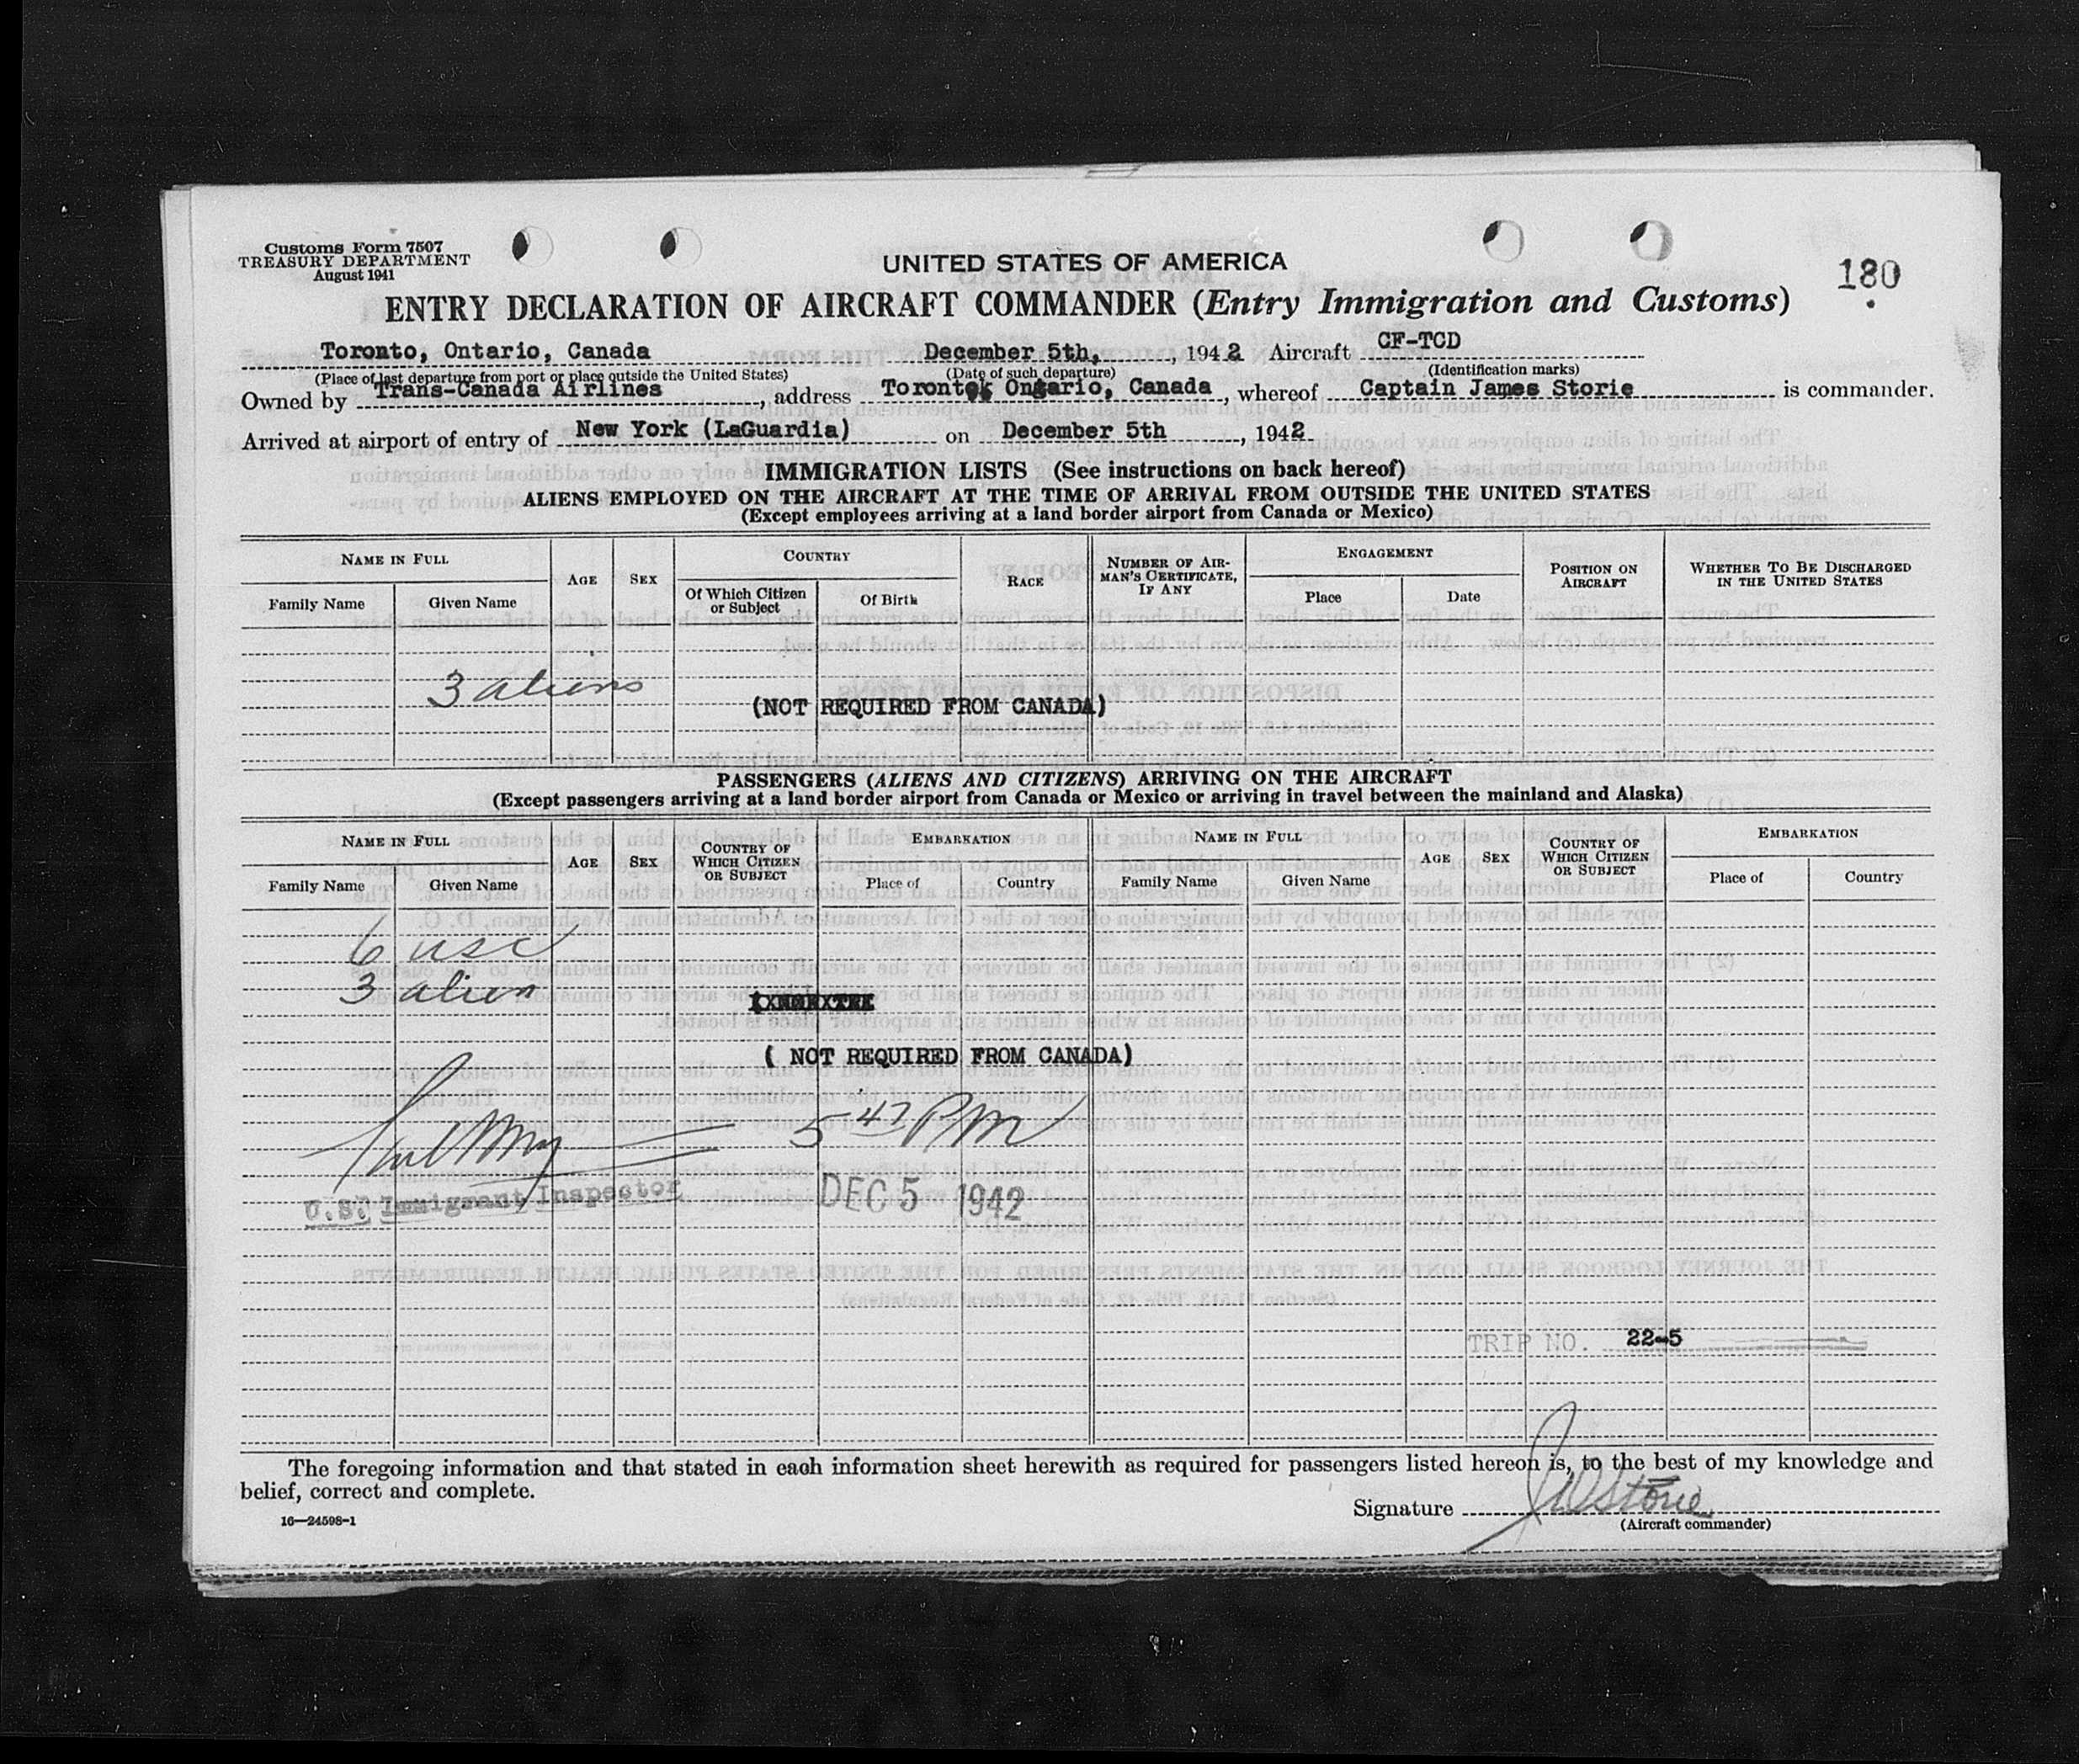 Customs Form 7507
TREASURY DEPARTMENT
August 1941
UNITED STATES OF AMERICA
180
ENTRY DECLARATION OF AIRCRAFT COMMANDER (Entry Immigration and Customs)
Toronto, Ontario, Canada December 5th, , 1942 Aircraft CF-TCD
(Place of last departure from port or place outside the United States) (Date of such departure) (Identification marks)
Owned by Trans-Canada Airlines, address Toronto Ontario, Canada, whereof Captain James Storie is commander.
Arrived at airport of entry of New York (LaGuardia) on December 5th, 1942
IMMIGRATION LISTS (See instructions on back hereof)
ALIENS EMPLOYED ON THE AIRCRAFT AT THE TIME OF ARRIVAL FROM OUTSIDE THE UNITED STATES
(Except employees arriving at a land border airport from Canada or Mexico)
NAME IN FULL AGE SEX COUNTRY RACE NUMBER OF AIRMAN'S CERTIFICATE, IF ANY ENGAGEMENT POSITION ON AIRCRAFT WHETHER TO BE DISCHARGED IN THE UNITED STATES
Family Name Given Name Of Which Citizen or Subject Of Birth Place Date
3 aliens
(NOT REQUIRED FROM CANADA)
PASSENGERS (ALIENS AND CITIZENS) ARRIVING ON THE AIRCRAFT
(Except passengers arriving at a land border airport from Canada or Mexico or arriving in travel between the mainland and Alaska)
NAME IN FULL AGE SEX COUNTRY OF WHICH CITIZEN OR SUBJECT EMBARKATION NAME IN FULL AGE SEX COUNTRY OF WHICH CITIZEN OR SUBJECT EMBARKATION
Family Name Given Name Place of Country Family Name Given Name Place of Country
6 usc
3 alien
( NOT REQUIRED FROM CANADA)
5 47 PM
U.S. Immigrant Inspector
DEC 5 1942
TRIP NO. 22-5
The foregoing information and that stated in each information sheet herewith as required for passengers listed hereon is, to the best of my knowledge and
belief, correct and complete.
Signature JW Storie
16—24598-1
(Aircraft commander)